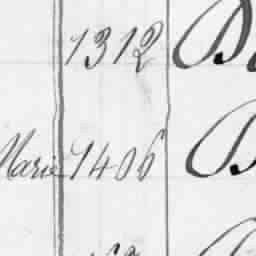 1312 B
Marie 1406 B